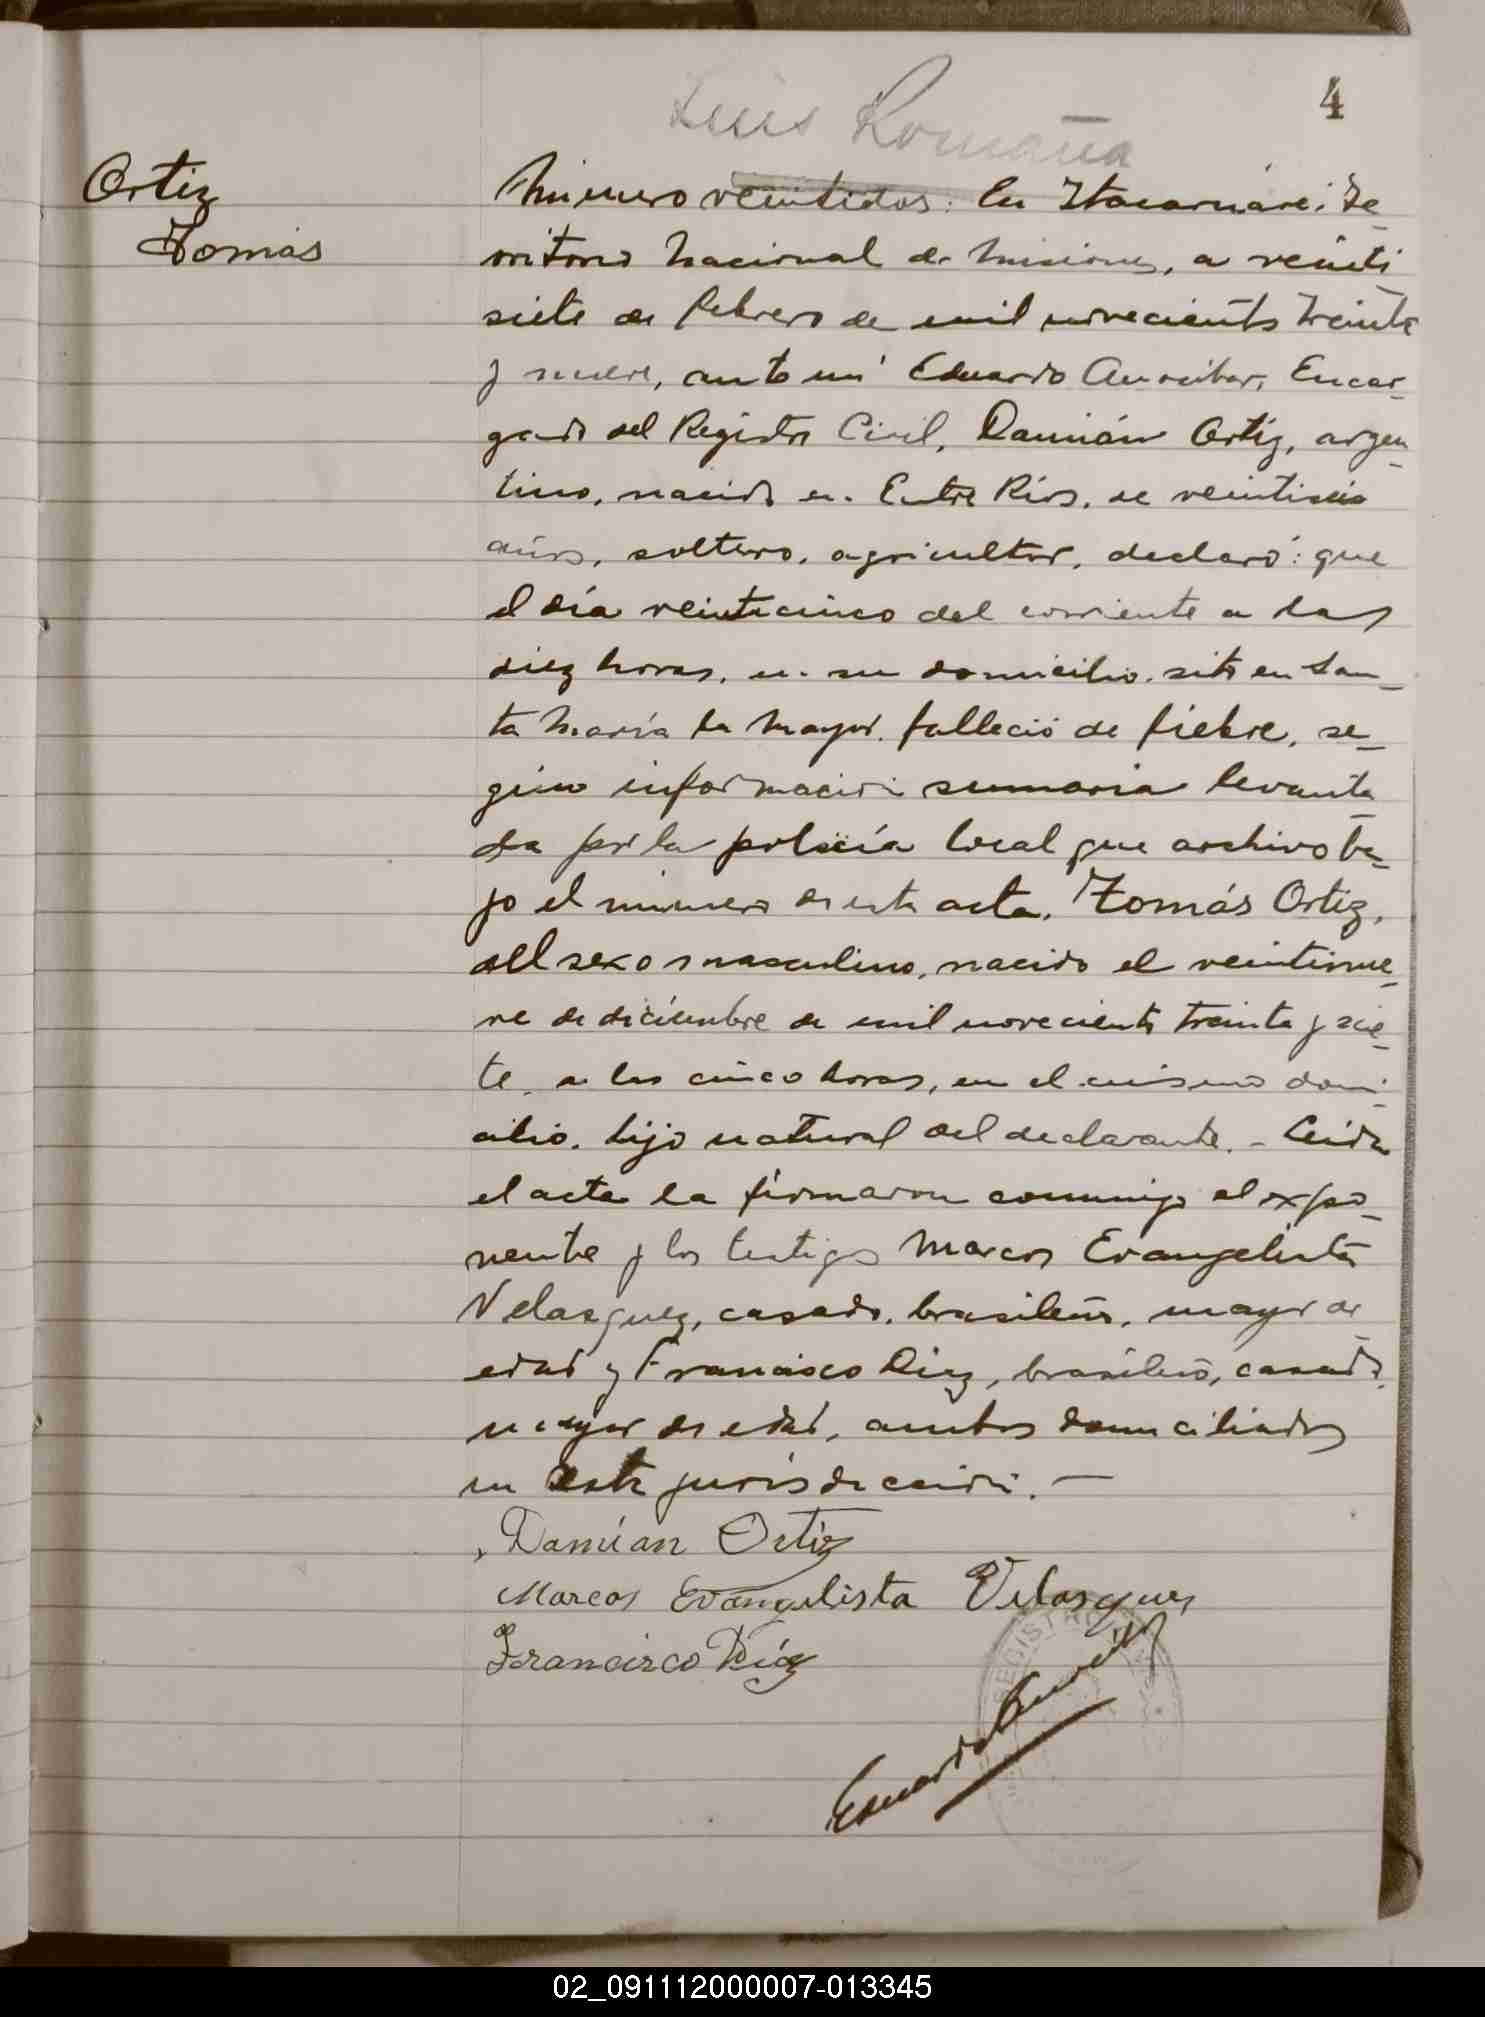 4
Luis Romaña
Ortiz
Tomás
Número veintidos: En Itacaruaré, Te-
rritorio Nacional de Misiones, a veinti
siete de febrero de mil novecientos treinta
y nueve, ante mi Eduardo Encar-
gado del Registro Civil, Damián Ortiz, argen-
tino, nacido en Entre Ríos, de veintiseis
años, soltero, agricultor, declaró: que
el día veinticinco del corriente a las
diez horas, en su domicilio sito en San-
ta María la Mayor, falleció de fiebre, se-
gún información sumaria levanta
da por la policía local que archivo ba-
jo el número de esta acta, Tomás Ortiz,
del sexo masculino, nacido el veintinue-
ve de diciembre de mil novecientos treinta y sie-
te, a las cinco horas, en el mismo domi-
cilio, hijo natural del declarante. - Leida
el acta la firmaron conmigo el expo-
nente y los testigos Marcos Evangelista
Velasquez, casado, brasileño, mayor de
edad y Francisco Diez, brasileño, casado,
mayor de edad, ambos domiciliados
en esta jurisdicción. —
Damían Ortiz
Marcos Evangelista Velasques
Francisco Díaz
REGISTRO
Eduardo
02_091112000007-013345